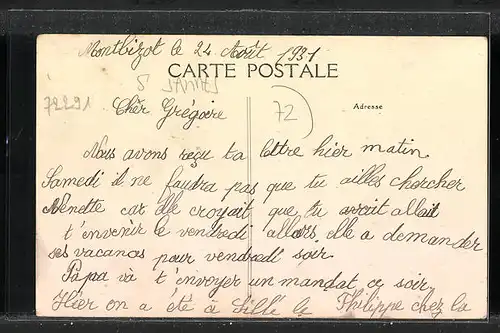 Montbizot le 24 Août 1931
CARTE POSTALE
72291
72
Adresse
Chèr Grégoire
Nous avons reçu ta lettre hier matin.
Samedi il ne faudra pas que tu ailles chercher
Nenette car elle croyait que tu avait allait
t'envenir le vendredi allors elle a demander
ses vacances pour vendredi soir.
Papa và t'envoyer un mandat ce soir.
Hier on a été à Sillé le Philippe chez la